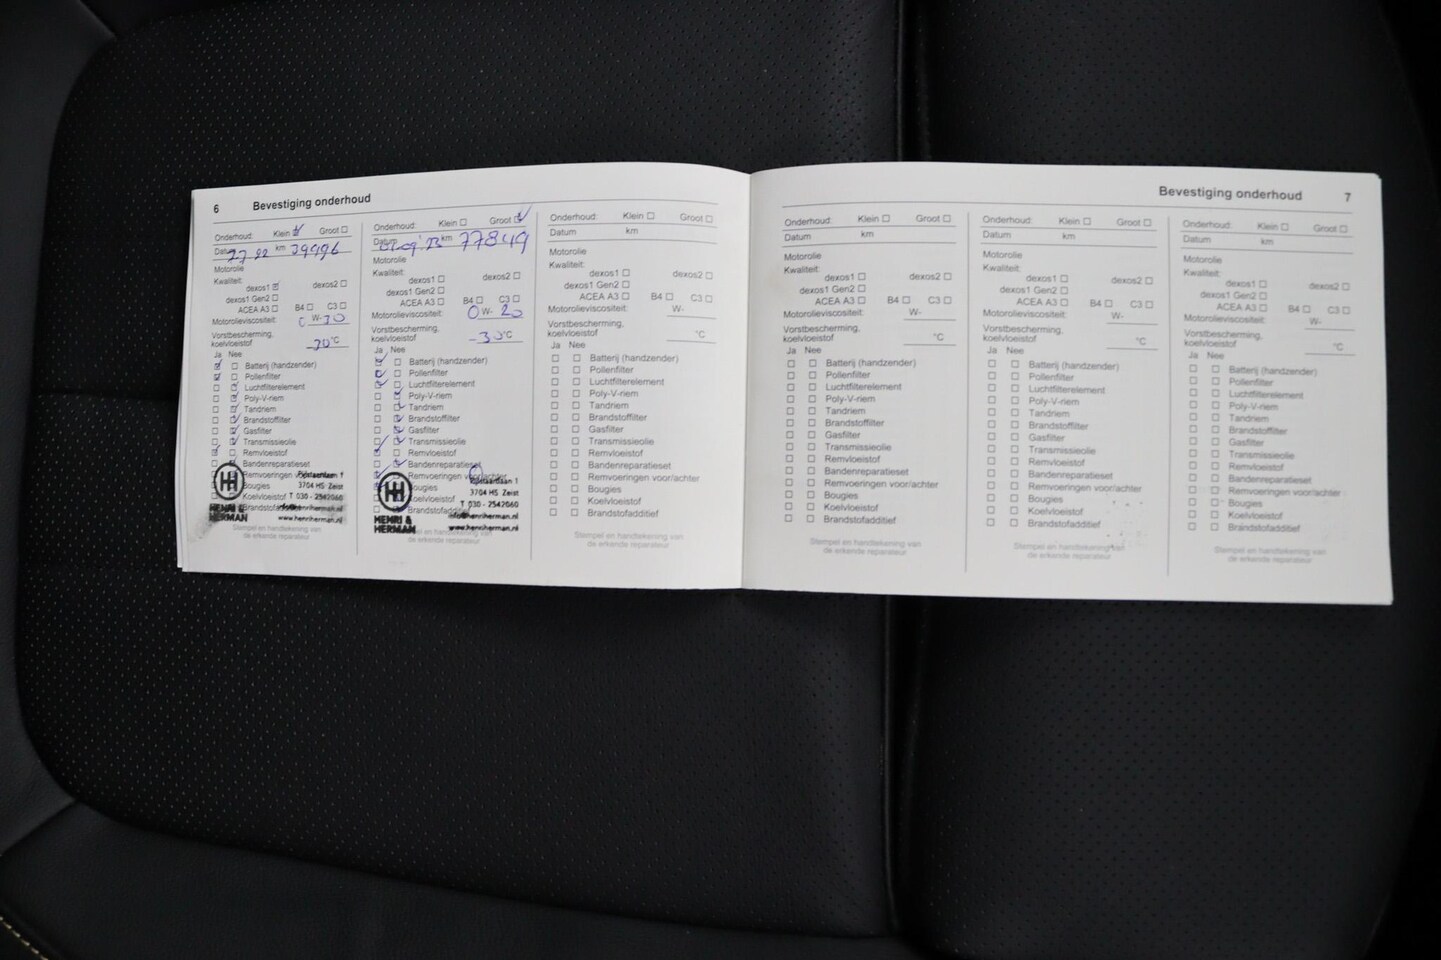 6 Bevestiging onderhoud
Onderhoud: Klein Groot
Datum 27 22 km 39996
Motorolie
Kwaliteit:
dexos1 dexos2
dexos1 Gen2
ACEA A3 B4 C3
Motorolieviscositeit: 0 W- 30
Vorstbescherming,
koelvloeistof -30 °C
Ja Nee
Batterij (handzender)
Pollenfilter
Luchtfilterelement
Poly-V-riem
Tandriem
Brandstoffilter
Gasfilter
Transmissieolie
Remvloeistof
Bandenreparatieset
Bougies
Koelvloeistof
HENRI &
HERMAN
3704 HS Zeist
T 030 - 2542060
www.henriherman.nl
Stempel en handtekening van
de erkende reparateur
Onderhoud: Klein Groot
Datum km 77849
Motorolie
Kwaliteit:
dexos1 dexos2
dexos1 Gen2
ACEA A3 B4 C3
Motorolieviscositeit: 0 W- 20
Vorstbescherming,
koelvloeistof -30 °C
Ja Nee
Batterij (handzender)
Pollenfilter
Luchtfilterelement
Poly-V-riem
Tandriem
Brandstoffilter
Gasfilter
Transmissieolie
Remvloeistof
Bandenreparatieset
Remvoeringen voor/achter
Bougies
Koelvloeistof
Brandstofadditief
HENRI &
HERMAN
3704 HS Zeist
T 030 - 2542060
info@henriherman.nl
www.henriherman.nl
Stempel en handtekening van
de erkende reparateur
Onderhoud: Klein Groot
Datum km
Motorolie
Kwaliteit:
dexos1 dexos2
dexos1 Gen2
ACEA A3 B4 C3
Motorolieviscositeit: W-
Vorstbescherming,
koelvloeistof °C
Ja Nee
Batterij (handzender)
Pollenfilter
Luchtfilterelement
Poly-V-riem
Tandriem
Brandstoffilter
Gasfilter
Transmissieolie
Remvloeistof
Bandenreparatieset
Remvoeringen voor/achter
Bougies
Koelvloeistof
Brandstofadditief
Stempel en handtekening van
de erkende reparateur
Bevestiging onderhoud 7
Onderhoud: Klein Groot
Datum km
Motorolie
Kwaliteit:
dexos1 dexos2
dexos1 Gen2
ACEA A3 B4 C3
Motorolieviscositeit: W-
Vorstbescherming,
koelvloeistof °C
Ja Nee
Batterij (handzender)
Pollenfilter
Luchtfilterelement
Poly-V-riem
Tandriem
Brandstoffilter
Gasfilter
Transmissieolie
Remvloeistof
Bandenreparatieset
Remvoeringen voor/achter
Bougies
Koelvloeistof
Brandstofadditief
Stempel en handtekening van
de erkende reparateur
Onderhoud: Klein Groot
Datum km
Motorolie
Kwaliteit:
dexos1 dexos2
dexos1 Gen2
ACEA A3 B4 C3
Motorolieviscositeit: W-
Vorstbescherming,
koelvloeistof °C
Ja Nee
Batterij (handzender)
Pollenfilter
Luchtfilterelement
Poly-V-riem
Tandriem
Brandstoffilter
Gasfilter
Transmissieolie
Remvloeistof
Bandenreparatieset
Remvoeringen voor/achter
Bougies
Koelvloeistof
Brandstofadditief
Stempel en handtekening van
de erkende reparateur
Onderhoud: Klein Groot
Datum km
Motorolie
Kwaliteit:
dexos1 dexos2
dexos1 Gen2
ACEA A3 B4 C3
Motorolieviscositeit: W-
Vorstbescherming,
koelvloeistof °C
Ja Nee
Batterij (handzender)
Pollenfilter
Luchtfilterelement
Poly-V-riem
Tandriem
Brandstoffilter
Gasfilter
Transmissieolie
Remvloeistof
Bandenreparatieset
Remvoeringen voor/achter
Bougies
Koelvloeistof
Brandstofadditief
Stempel en handtekening van
de erkende reparateur